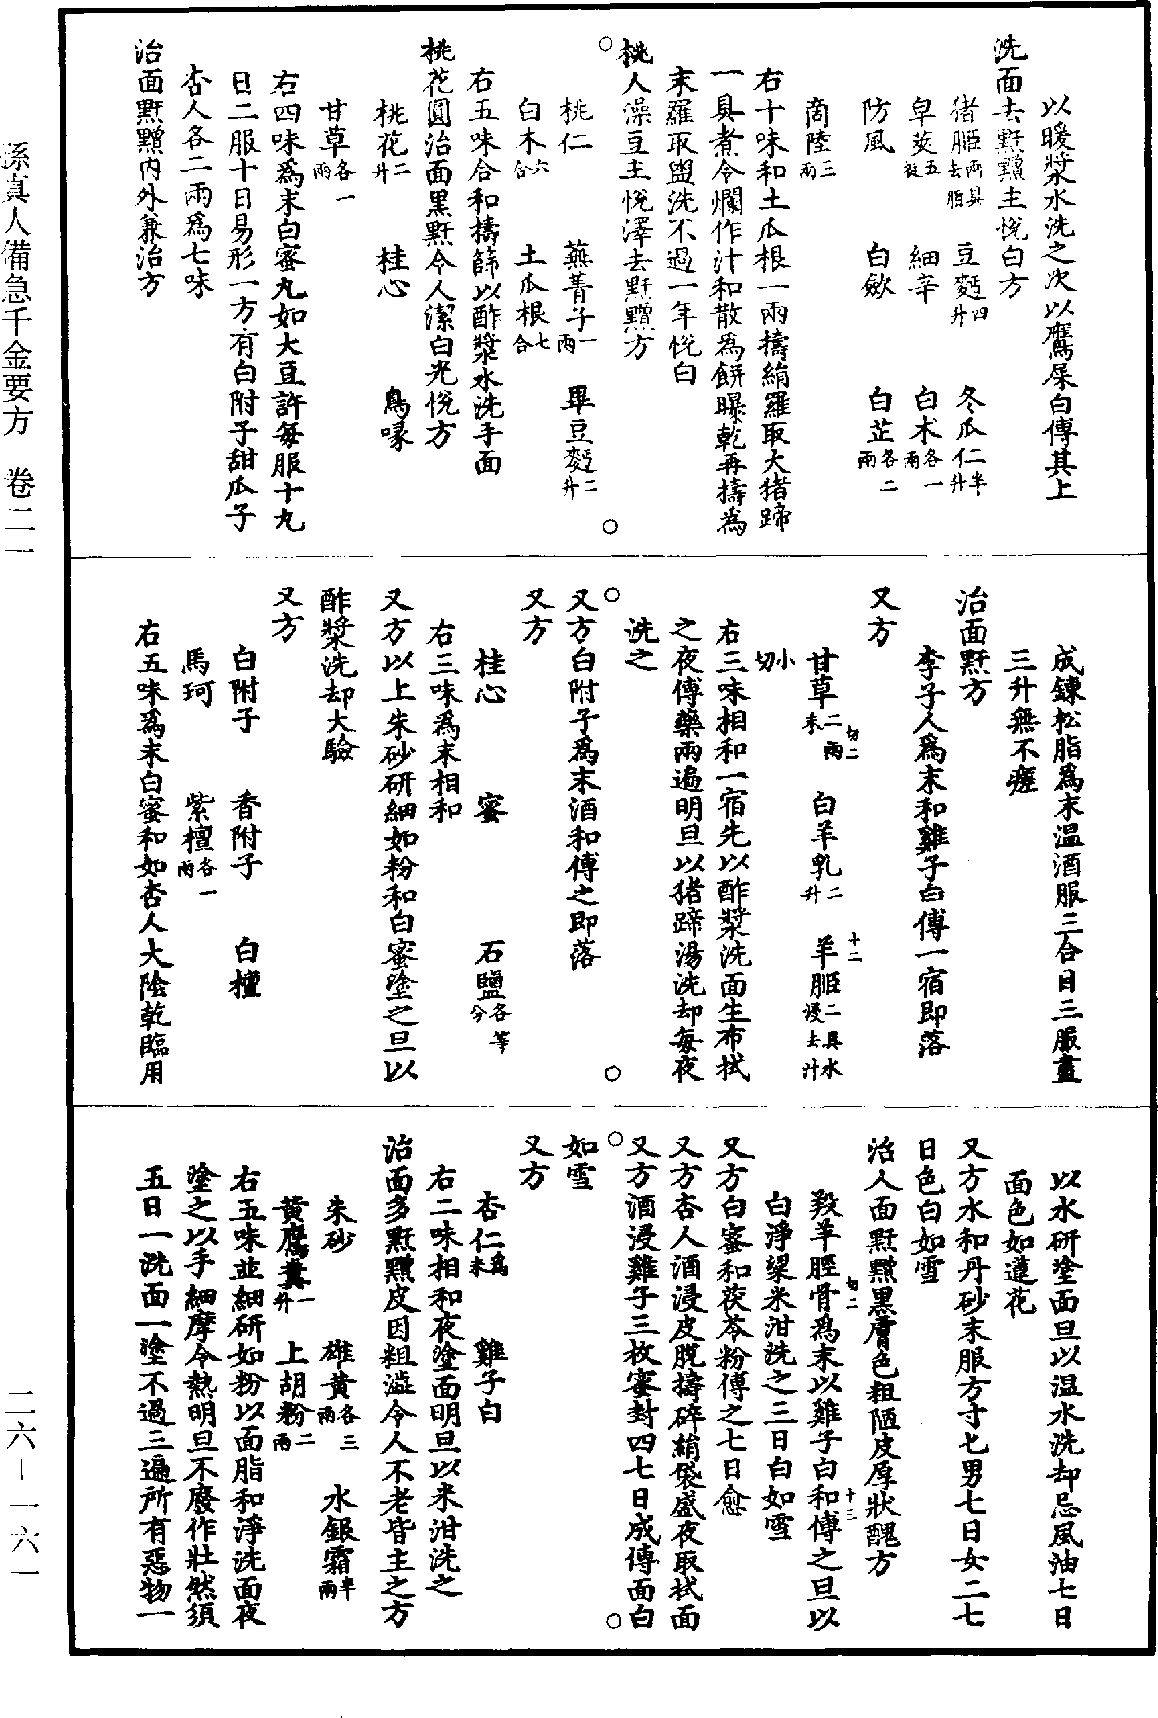 以暖漿水洗之次以鷹屎白傅其上
洗面去䵟䵳主悅白方
猪脏兩具去脂 豆麪四升 冬瓜仁半升
皁莢五挺 細辛 白术各一兩
防風 白斂 白芷各二兩
商陸三兩
右十味和土瓜根一兩擣絹羅取大猪蹄
一具煮令爛作汁和散爲餅曝乾再擣爲
末羅取盥洗不過一年悅白
桃人澡豆主悅澤去䵟䵳方
桃仁 蕪菁子一兩 畢豆麪二升
白木六合 土瓜根七合
右五味合和擣篩以酢漿水洗手面
桃花圓治面黑䵟令人潔白光悅方
桃花二升 桂心 烏喙
甘草各一兩
右四味爲末白蜜丸如大豆許每服十丸
日二服十日易形一方有白附子甜瓜子
杏人各二兩爲七味
治面䵟䵳內外兼治方
成鍊松脂爲末温酒服三合日三服盡
三升無不瘥
治面䵟方
李子人爲末和雞子白傅一宿即落
又方
甘草二兩末 白羊乳二升 羊脏二具水浸去汁
切二
十二
小切
右三味相和一宿先以酢漿洗面生布拭
之夜傅藥兩遍明旦以猪蹄湯洗却每夜
洗之
又方白附子爲末酒和傅之即落
又方
桂心 蜜 石鹽各等分
右三味爲末相和
又方以上朱砂研細如粉和白蜜塗之旦以
酢漿洗却大驗
又方
白附子 香附子 白檀
馬珂 紫檀各一兩
右五味爲末白蜜和如杏人大陰乾臨用
以水研塗面旦以温水洗却忌風油七日
面色如蓮花
又方水和丹砂末服方寸匕男七日女二七
日色白如雪
治人面䵟䵳黑膚色粗陋皮厚狀醜方
羖羊脛骨爲末以雞子白和傅之旦以
切二
十三
白淨粱米泔洗之三日白如雪
又方白蜜和茯苓粉傅之七日愈
又方杏人酒浸皮脫擣碎絹袋盛夜取拭面
又方酒浸雞子三枚蜜封四七日成傅面白
如雪
又方
杏仁爲末 雞子白
右二味相和夜塗面明旦以米泔洗之
治面多䵟䵳皮因粗澁令人不老皆主之方
朱砂 雄黃各三兩 水銀霜半兩
黃鷹糞一升 上胡粉二兩
右五味並細研如粉以面脂和淨洗面夜
塗之以手細摩令熱明旦不廢作壯然須
五日一洗面一塗不過三遍所有惡物一
孫真人備急千金要方 卷二一
二六－一六一